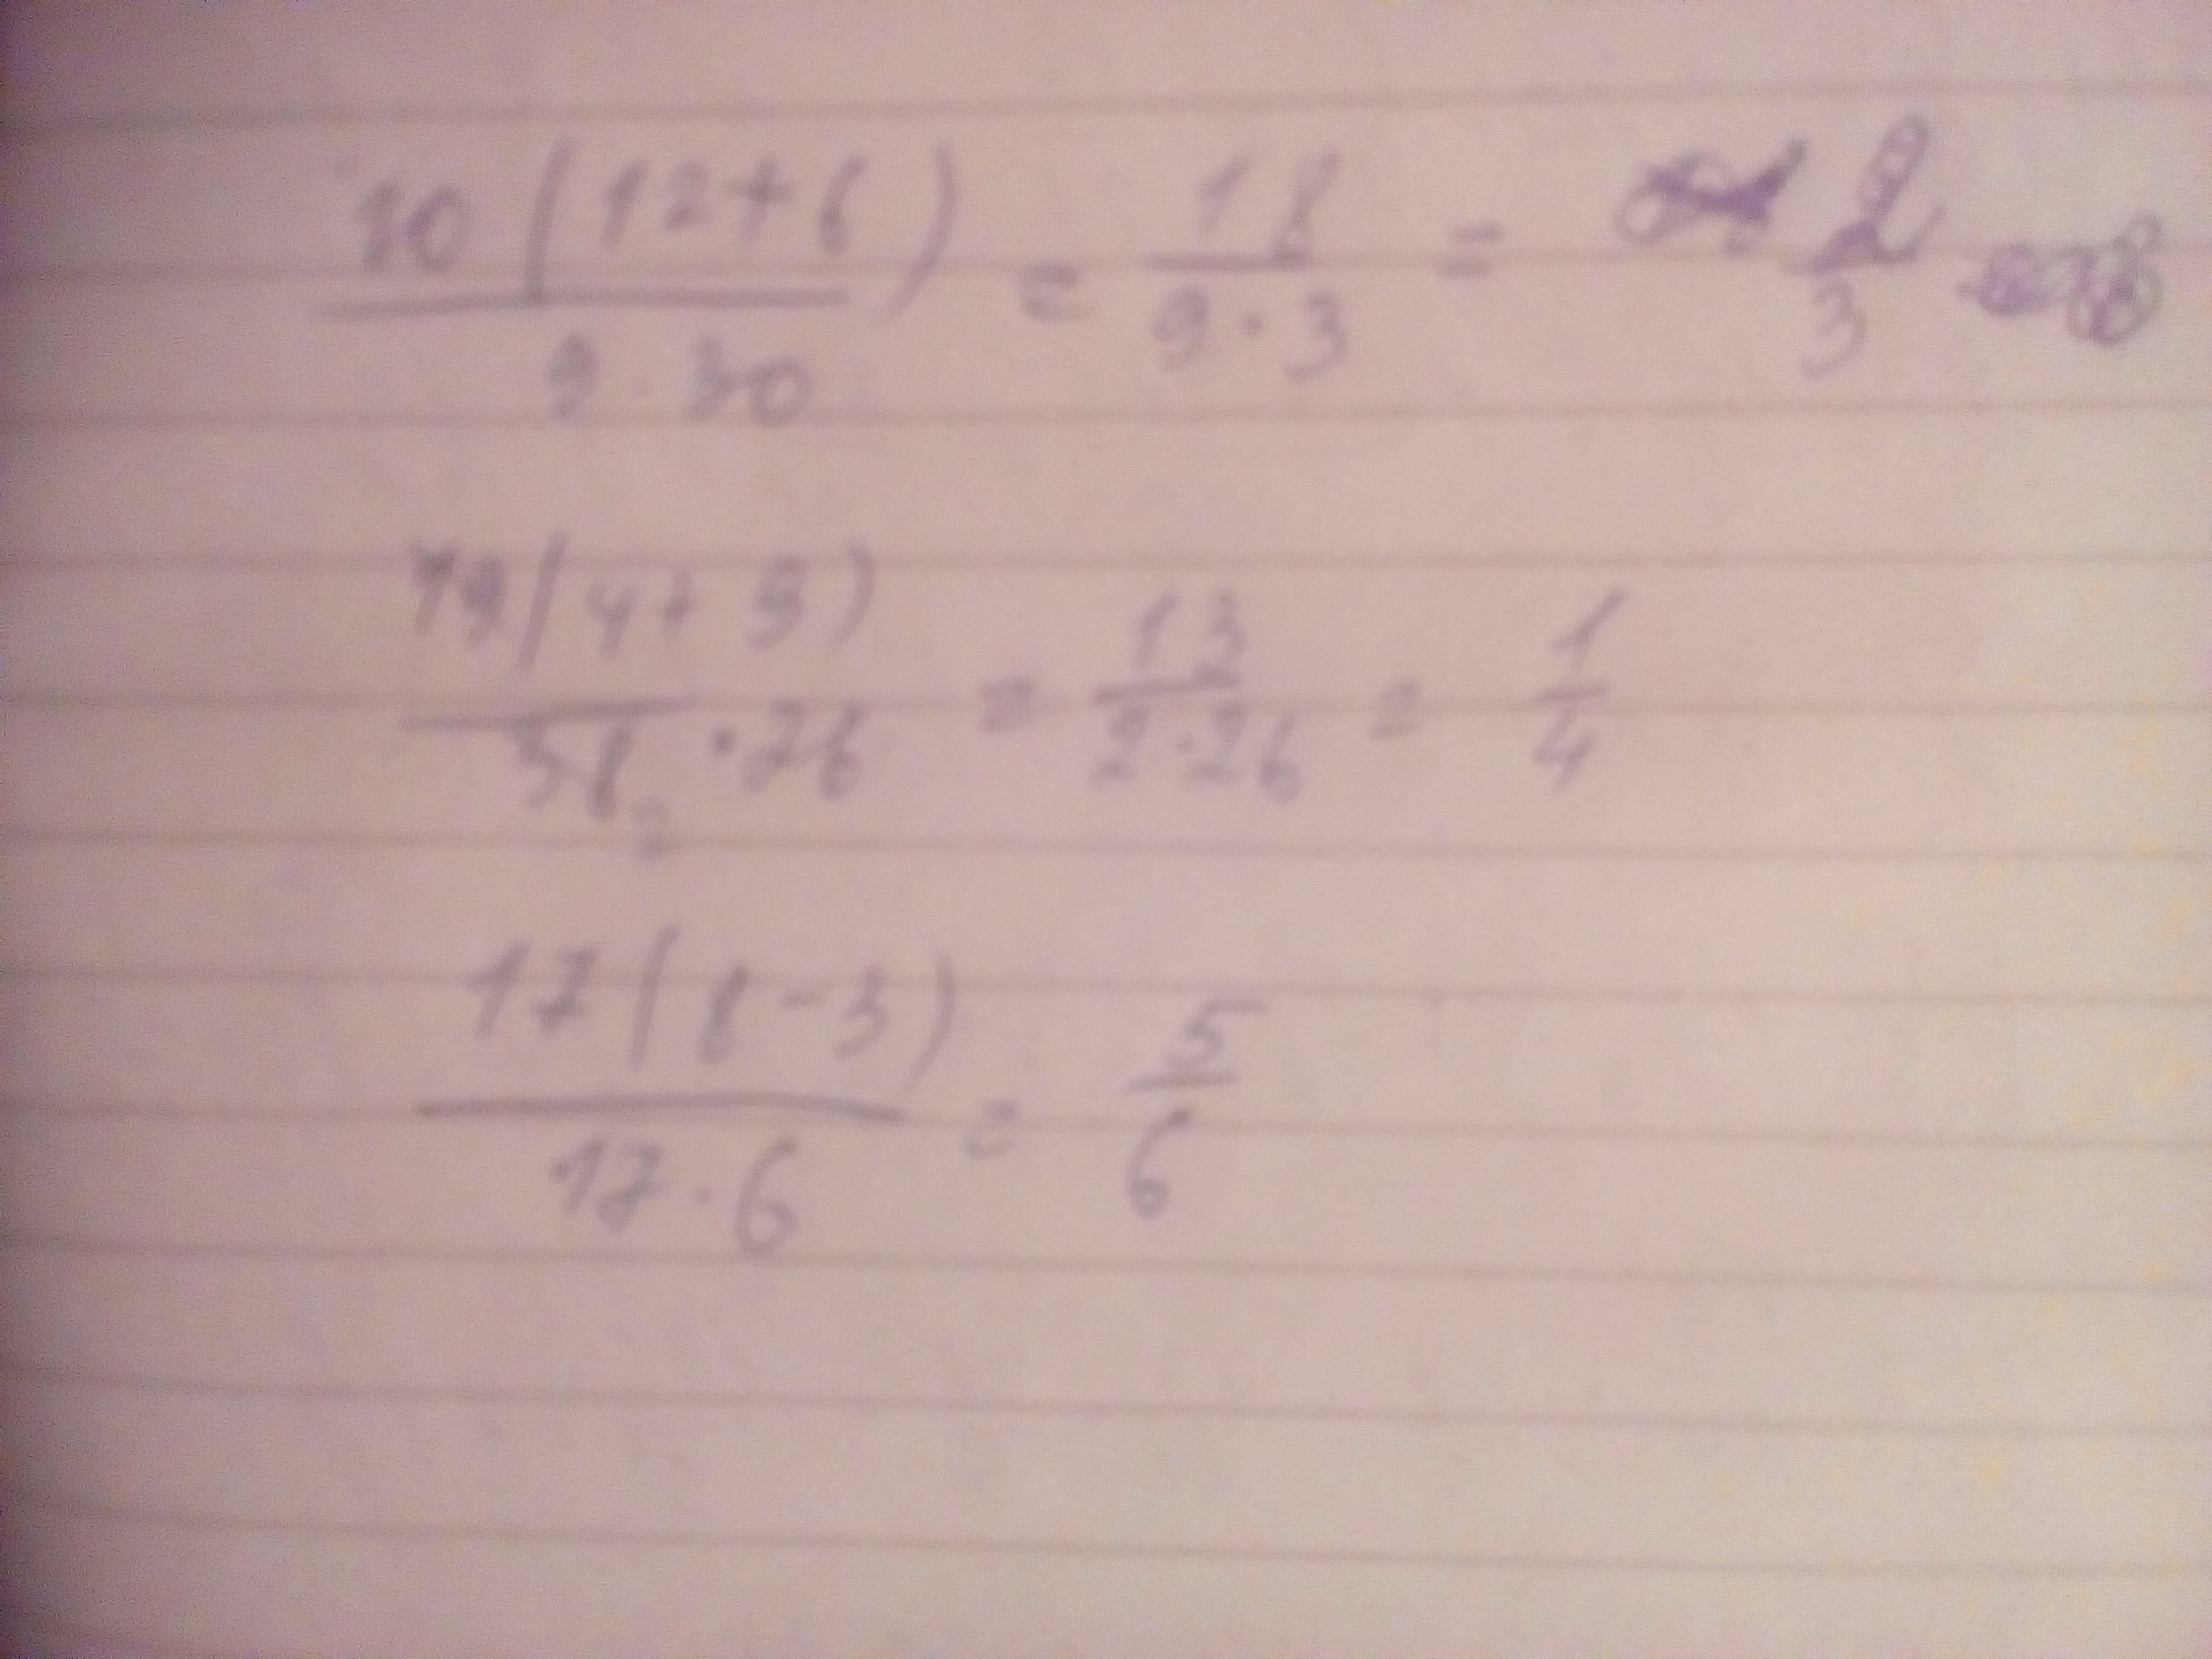 10(12+6)/9·30 = 18/9·3 = 2/3
19(4+9)/38₂·26 = 13/2·26 = 1/4
17(8-3)/17·6 = 5/6